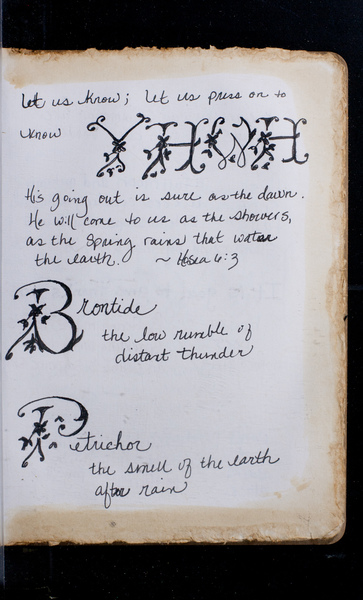 let us know; let us press on to
know YHWH
His going out is sure as the dawn.
He will come to us as the showers,
as the spring rains that water
the earth. ~ Hosea 6:3
Brontide
the low rumble of
distant thunder
Petrichor
the smell of the earth
after rain